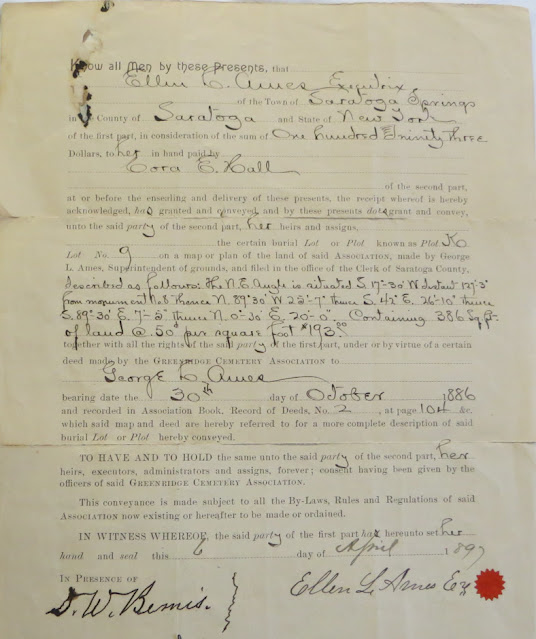 Know all Men by these Presents, that
Ellen L. Ames Executrix
of the Town of Saratoga Springs
in the County of Saratoga and State of New York
of the first part, in consideration of the sum of One hundred Ninity three
Dollars, to her in hand paid by
Cora E. Hall
of the second part,
at or before the ensealing and delivery of these presents, the receipt whereof is hereby
acknowledged, has granted and conveyed, and by these presents does grant and convey,
unto the said party of the second part, her heirs and assigns,
the certain burial Lot or Plot known as Plot K
Lot No. 9 on a map or plan of the land of said Association, made by George
L. Ames, Superintendent of grounds, and filed in the office of the Clerk of Saratoga County,
described as follows: The N.E. Angle is situated S. 17°-30' W distant 127'-3"
from monument N. 8" thence N. 89°30' W 22'-7" thence S. 42° E. 26'-10" thence
S. 89°30 E. 7'-2" thence N. 0°-30' E. 20'-0". Containing 386 Sq. ft.
of land @ .50¢ per square foot $193.00
together with all the rights of the said party of the first part, under or by virtue of a certain
deed made by the Greenridge Cemetery Association to
George L. Ames
bearing date the 30th day of October 1886
and recorded in Association Book, Record of Deeds, No. 2, at page 104 &c.
which said map and deed are hereby referred to for a more complete description of said
burial Lot or Plot hereby conveyed.
TO HAVE AND TO HOLD the same unto the said party of the second part, her
heirs, executors, administrators and assigns, forever; consent having been given by the
officers of said Greenridge Cemetery Association.
This conveyance is made subject to all the By-Laws, Rules and Regulations of said
Association now existing or hereafter to be made or ordained.
IN WITNESS WHEREOF, the said party of the first part has hereunto set her
hand and seal this 6 day of April 1897
In Presence of
S. W. Bemis.
Ellen L. Ames Ex